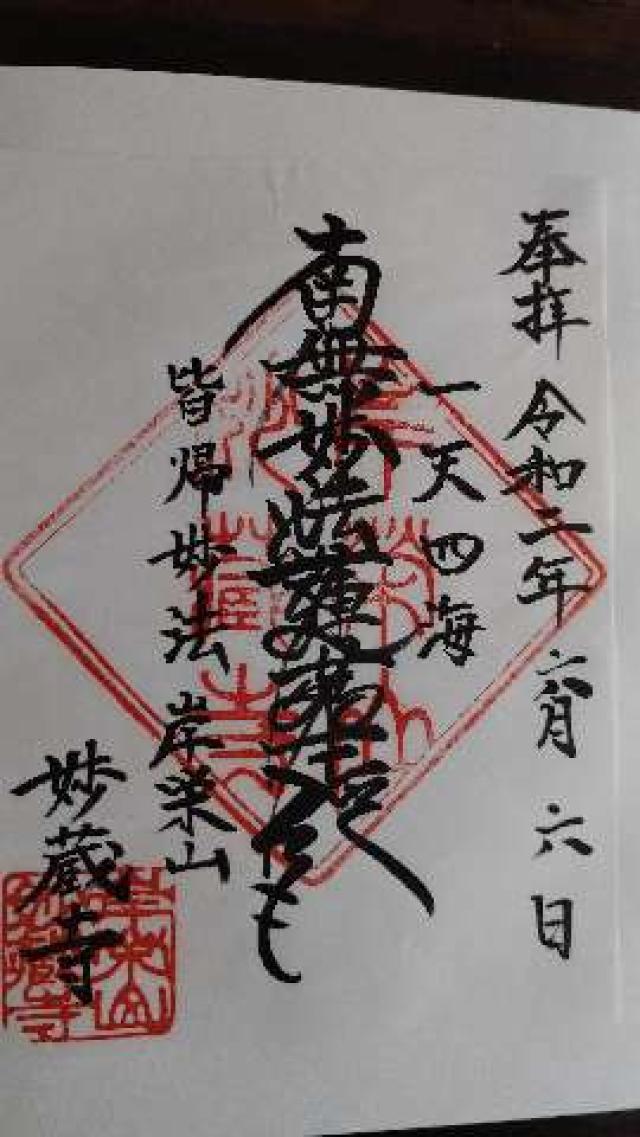 奉拝 令和二年 六月 六日
一天四海
南無妙法蓮華経
皆帰妙法 岸栄山
妙蔵寺